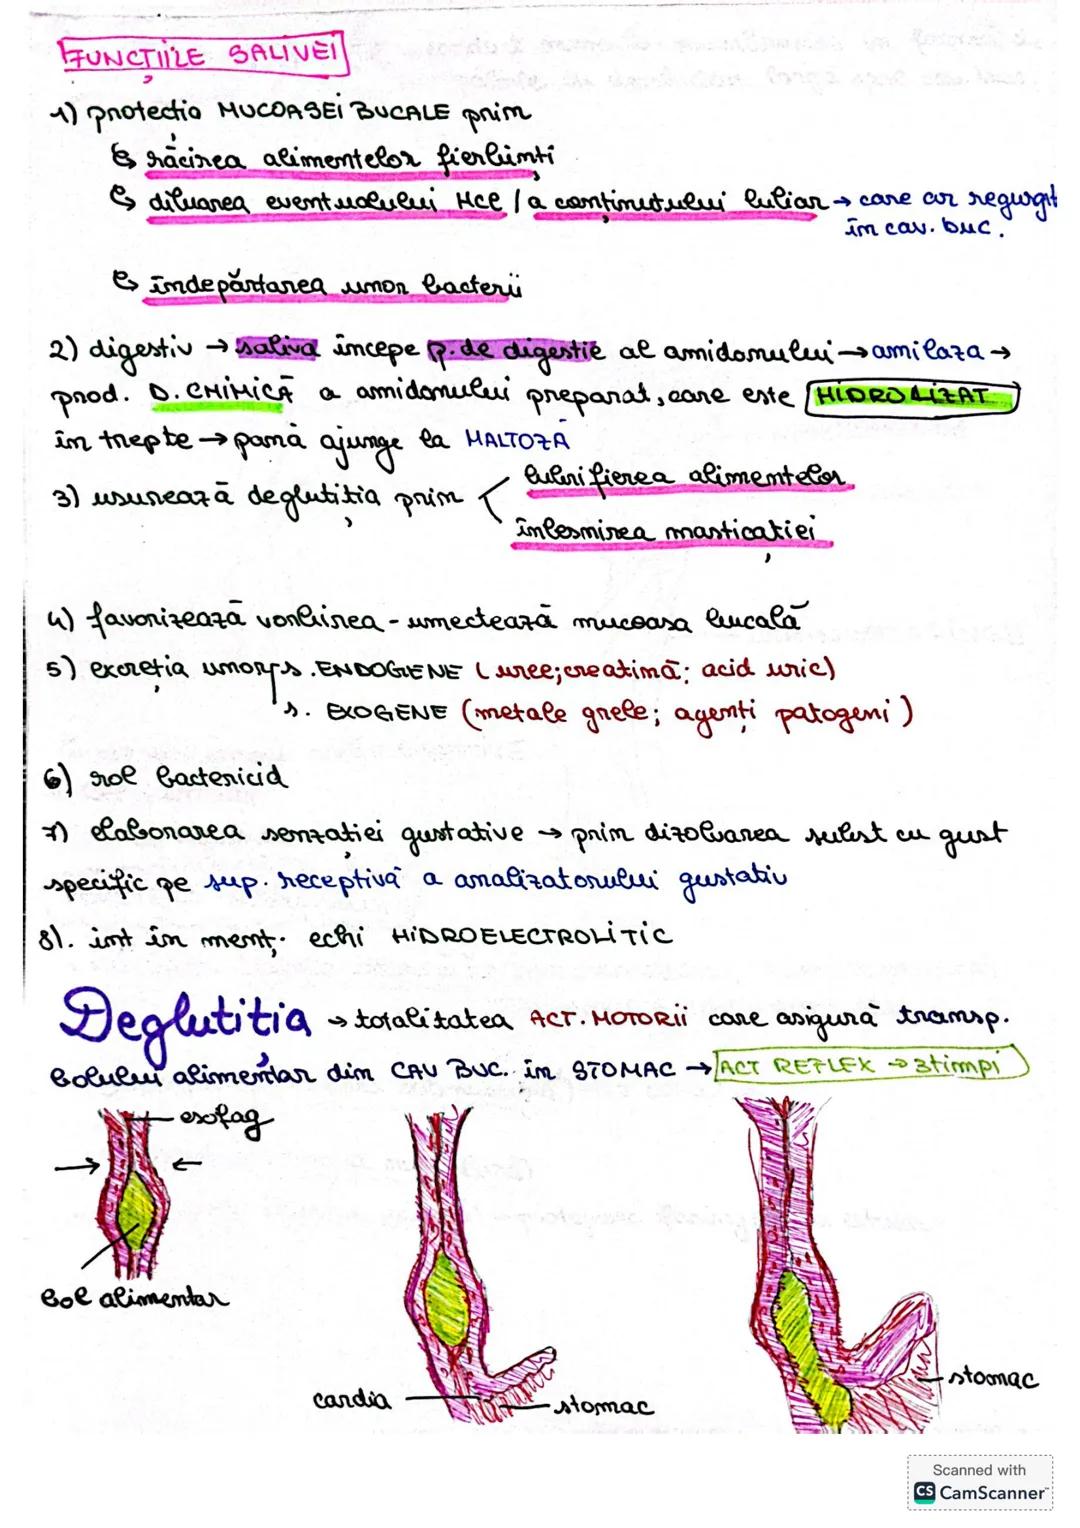 FUNCȚIILE SALIVEI
1) protecția MUCOASEI BUCALE prin
răcirea alimentelor fierbinți
diluarea eventualului HCl / a conținutului biliar → care ar regurgit
în cav. buc.
îndepărtarea unor bacterii
2) digestiv → saliva începe p. de digestie al amidonului → amilaza →
prod. D. CHIMICĂ a amidonului preparat, care este HIDROLIZAT
în trepte → pană ajunge la MALTOZĂ
lubrifierea alimentelor
3) ușurează deglutiția prin
înlesnirea masticației
4) favorizează vorbirea - umectează mucoasa bucală
5) excreția unor s. ENDOGENE (uree; creatină; acid uric)
s. EXOGENE (metale grele; agenți patogeni)
6) rol bactericid
7) elaborarea senzației gustative → prin dizolvarea subst cu gust
specific pe sup. receptivă a analizatorului gustativ
8). int în menț. echi HIDROELECTROLITIC
Deglutiția → totalitatea ACT. MOTORII care asigură transp.
bolului alimentar din CAV BUC. în STOMAC → ACT REFLEX → 3timpi
esofag
bol alimentar
cardia
stomac
stomac
Scanned with
CS CamScanner